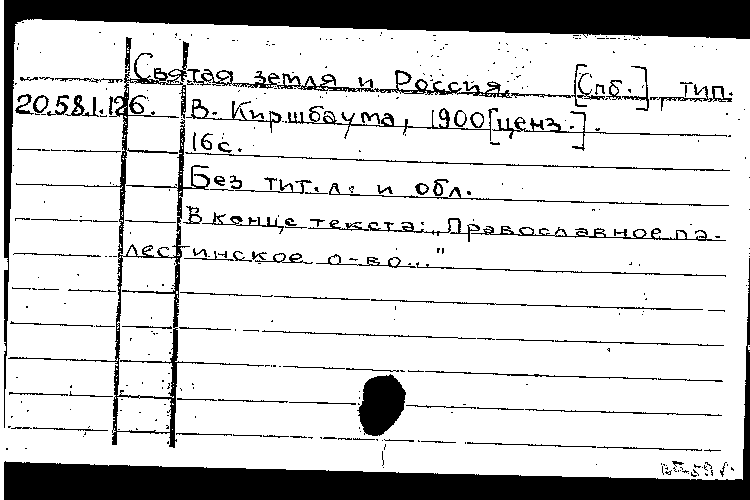 Святая земля и Россия. [Спб.], тип.
20.58.1.126. В. Киршбаума, 1900 [ценз.].
16 с.
Без тит. л. и обл.
В конце текста: „Православное па-
лестинское о-во..."